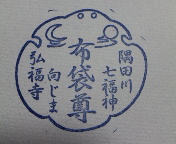 隅田川
七福神
布袋尊
向じま
弘福寺